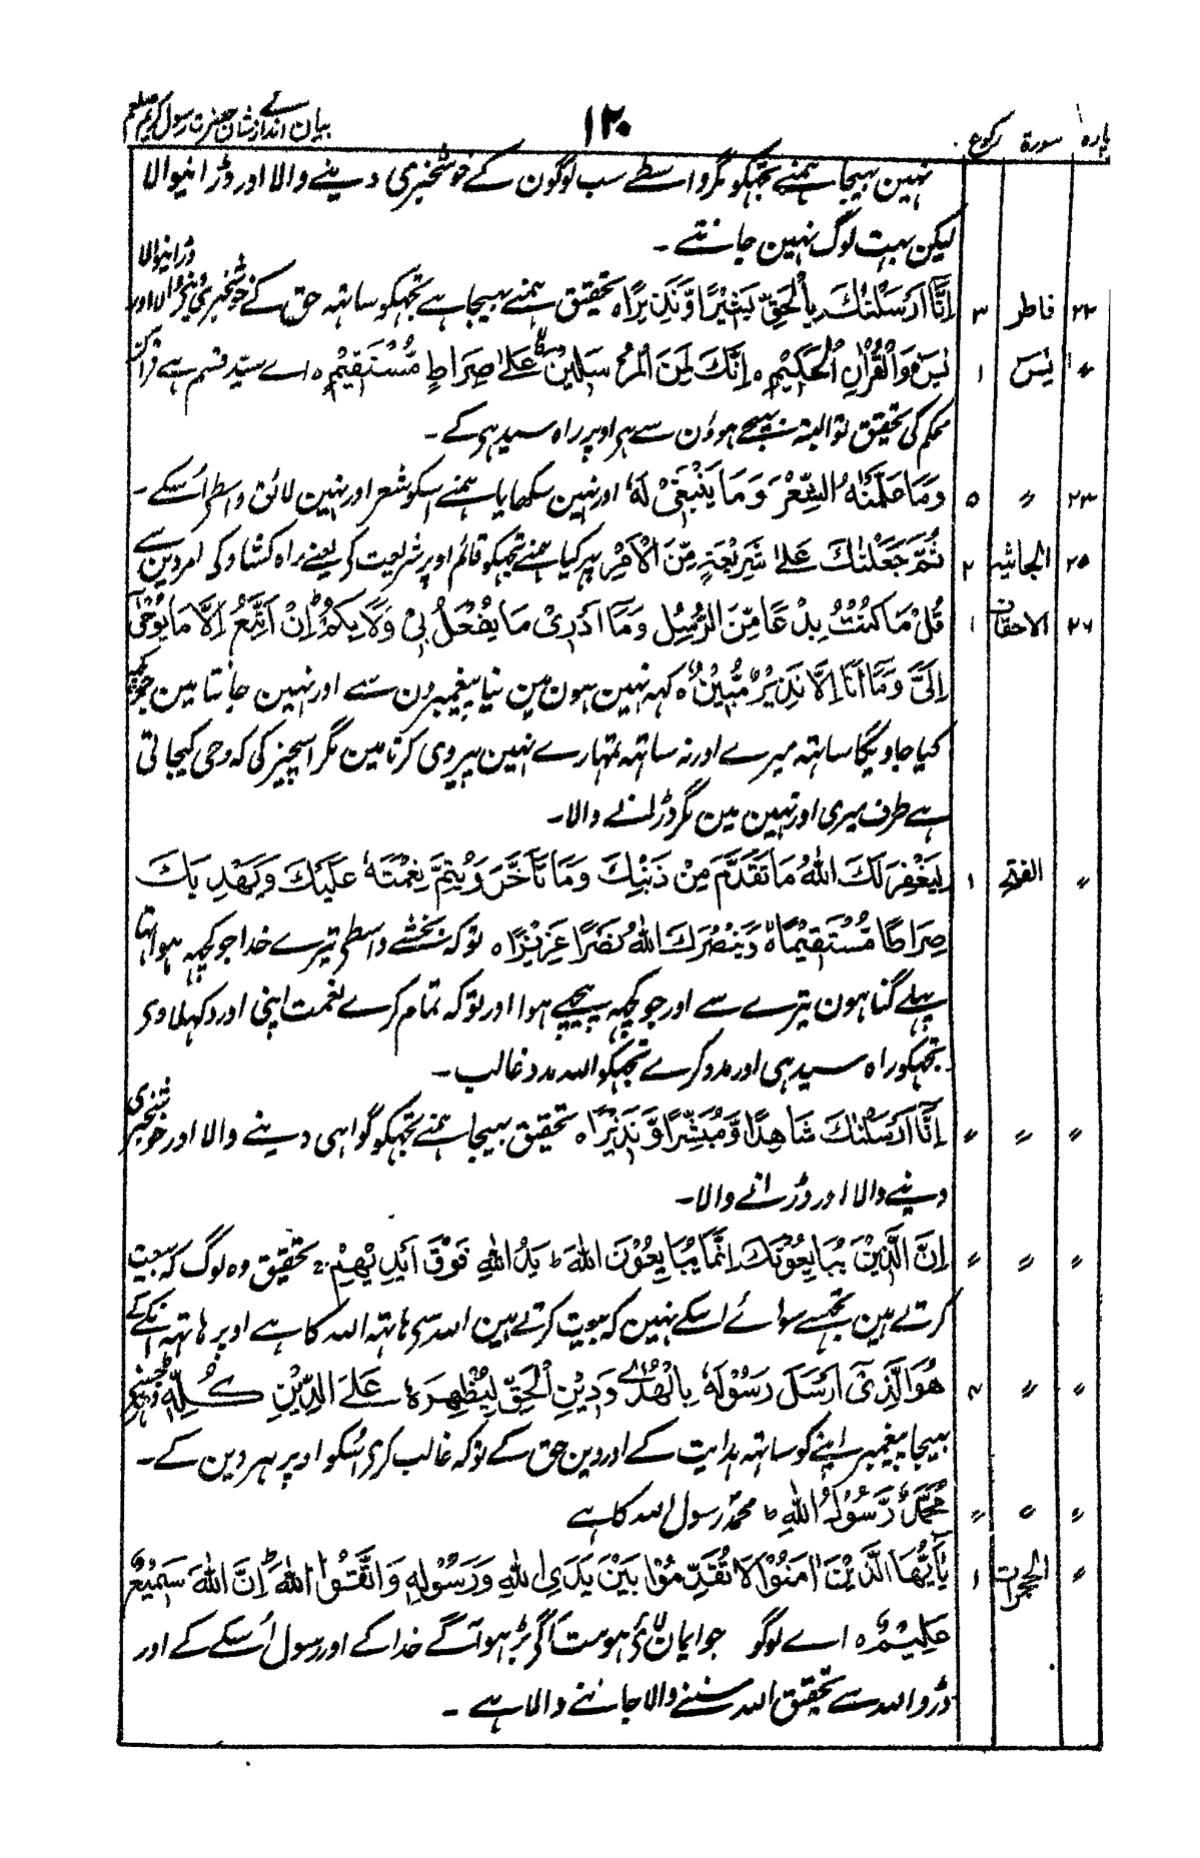 پارہ سورۃ رکوع ۱۲۰ بیان انداز شان حضرت رسول کریم صلعم
نہین بہیجا ہمنے تجہکو مگر واسطے سب لوگون کے خوشخبری دینے والا اور ڈرانیوالا
لیکن بہت لوگ نہین جانتے ۔
۲۲ فاطر ۳ اِنَّا اَرْسَلْنٰكَ بِالْحَقِّ بَشِیْرًا وَّنَذِیْرًا ہ تحقیق ہمنے بہیجا ہے تجہکو ساتہہ حق کے خوشخبری دینے والا اور ڈرانیوالا
〃 یٰس ۱ یٰسٓ وَالْقُرْاٰنِ الْحَكِیْمِ ہ اِنَّكَ لَمِنَ الْمُرْسَلِیْنَ عَلٰی صِرَاطٍ مُّسْتَقِیْمٍ ہ اے سید قسم ہے قرآن
محکم کی تحقیق تو البتہ بہیجے ہوؤن سے ہی اوپر راہ سیدہی کے ۔
۲۳ 〃 ۵ وَمَا عَلَّمْنٰهُ الشِّعْرَ وَمَا یَنْبَغِیْ لَهٗ اور نہین سکھایا ہمنے اسکو شعر اور نہین لائق واسطے اسکے ۔
۲۵ الجاثیہ ۲ ثُمَّ جَعَلْنٰكَ عَلٰی شَرِیْعَةٍ مِّنَ الْاَمْرِ پہر کیا ہمنے تجہکو قائم اوپر شریعت کی یعنے راہ کشادہ کی امر دین سے
۲۶ الاحقاف ۱ قُلْ مَا كُنْتُ بِدْعًا مِّنَ الرُّسُلِ وَمَا اَدْرِیْ مَا یُفْعَلُ بِیْ وَلَا بِكُمْ اِنْ اَتَّبِعُ اِلَّا مَا یُوْحٰی
اِلَیَّ وَمَا اَنَا اِلَّا نَذِیْرٌ مُّبِیْنٌ ہ کہہ نہین ہون مین نیا پیغمبرون سے اور نہین جانتا مین جو کچہہ
کیا جاویگا ساتہہ میرے اور نہ ساتہہ تمہارے نہین پیروی کرتا مین مگر اسچیز کی کہ وحی کیجاتی
ہے طرف میری اور نہین مین مگر ڈرانے والا۔
〃 الفتح ۱ لِیَغْفِرَ لَكَ اللهُ مَا تَقَدَّمَ مِنْ ذَنْبِكَ وَمَا تَاَخَّرَ وَیُتِمَّ نِعْمَتَهٗ عَلَیْكَ وَیَهْدِیَكَ
صِرَاطًا مُّسْتَقِیْمًا ہ وَیَنْصُرَكَ اللهُ نَصْرًا عَزِیْزًا ہ توکہ بخشے واسطے تیرے خدا جو کچہہ ہوا تہا
پہلے گناہون تیرے سے اور جو کچہہ پیچہے ہوا اور توکہ تمام کرے نعمت اپنی اور دکہلاوی
تجہکو راہ سیدہی اور مدد کرے تجہکو اللہ مدد غالب ۔
〃 〃 〃 اِنَّا اَرْسَلْنٰكَ شَاهِدًا وَّمُبَشِّرًا وَّنَذِیْرًا ہ تحقیق بہیجا ہمنے تجہکو گواہی دینے والا اور خوشخبری
دینے والا اور ڈرانے والا۔
〃 〃 〃 اِنَّ الَّذِیْنَ یُبَایِعُوْنَكَ اِنَّمَا یُبَایِعُوْنَ اللهَ ط یَدُ اللهِ فَوْقَ اَیْدِیْهِمْ ۔ تحقیق وہ لوگ کہ بیعت
کرتے ہین تجہسے سوائے اسکے نہین کہ بیعت کرتے ہین اللہ سے ہاتہہ اللہ کا ہے اوپر ہاتہہ انکے کے
〃 〃 ۴ هُوَ الَّذِیْ اَرْسَلَ رَسُوْلَهٗ بِالْهُدٰی وَدِیْنِ الْحَقِّ لِیُظْهِرَهٗ عَلَی الدِّیْنِ كُلِّهٖ ط وہ ہی جسنے
بہیجا پیغمبر اپنے کو ساتہہ ہدایت کے اور دین حق کے توکہ غالب کرے اسکو اوپر ہر دین کے ۔
〃 〃 〃 مُحَمَّدٌ رَّسُوْلُ اللهِ ط محمد رسول اللہ کا ہے
〃 الحجرات ۱ یٰٓاَیُّهَا الَّذِیْنَ اٰمَنُوْا لَا تُقَدِّمُوْا بَیْنَ یَدَیِ اللهِ وَرَسُوْلِهٖ وَاتَّقُوا اللهَ ط اِنَّ اللهَ سَمِیْعٌ
عَلِیْمٌ ہ اے لوگو جو ایمان لائے ہو مت آگے بڑہو آگے خدا کے اور رسول اسکے کے اور
ڈرو اللہ سے تحقیق اللہ سننے والا جاننے والا ہے ۔